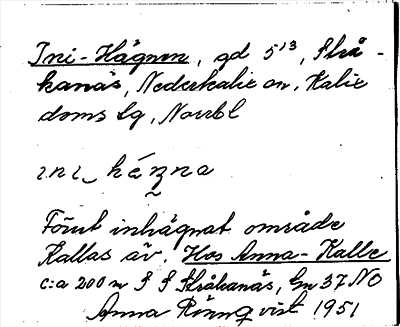 Ini-Hägnen, gd 5¹³, Strå-
kanäs, Nederkalix sn, Kalix
doms lg, Norrbl
ini_ hézna
Förut inhägnat område
Kallas äv. Hos Anna-Kalle
c:a 200 m S S Stråkanäs, Gm 37 NO
Anna Rönnqvist 1951